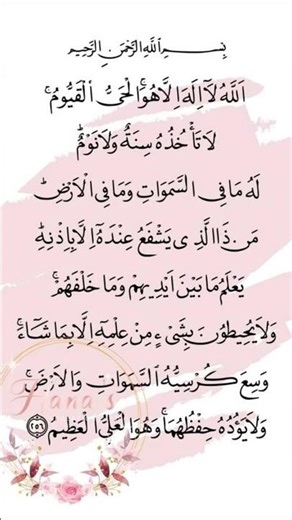 بِسْمِ اللَّهِ الرَّحْمَنِ الرَّحِيمِ
اَللّٰهُ لَآ اِلٰهَ اِلَّا هُوَ ۚ اَلْحَىُّ الْقَيُّومُ ۚ
لَا تَأْخُذُهُ سِنَةٌ وَلَا نَوْمٌ ؕ
لَهُ مَا فِى السَّمٰوَاتِ وَمَا فِى الْاَرْضِ ؕ
مَنْ ذَا الَّذِى يَشْفَعُ عِنْدَهُٓ اِلَّا بِاِذْنِهِ ؕ
يَعْلَمُ مَا بَيْنَ اَيْدِيهِمْ وَمَا خَلْفَهُمْ ۚ
وَلَا يُحِيطُونَ بِشَىْءٍ مِنْ عِلْمِهِٓ اِلَّا بِمَا شَٓاءَ ۚ
وَسِعَ كُرْسِيُّهُ السَّمٰوَاتِ وَالْاَرْضَ ۚ
Fana's
وَلَا يَؤُدُهُ حِفْظُهُمَا ۚ وَهُوَ الْعَلِىُّ الْعَظِيمُ ﴿٢٥٥﴾